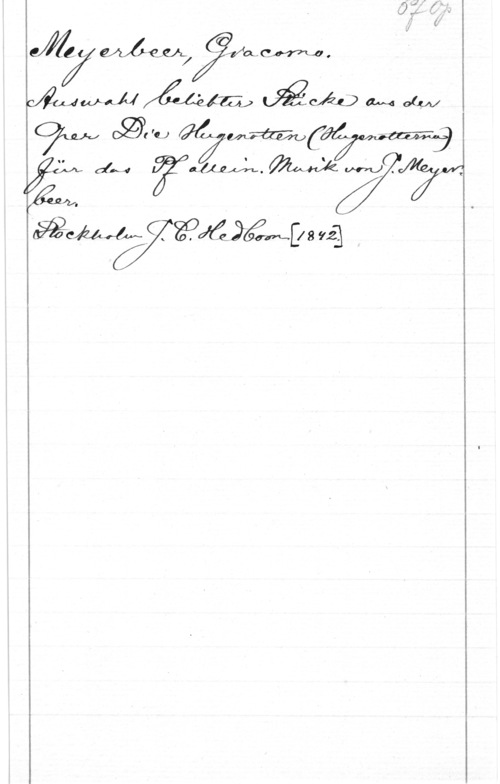 Meyerbeer, Giacomo.
Auswahl beliebter Stücke aus der
Oper Die Hugenotten (Hugenotterna)
für das Pf allein. Musik von J. Meyer-
beer.
Stockholm J. C. Hedbom [1842]